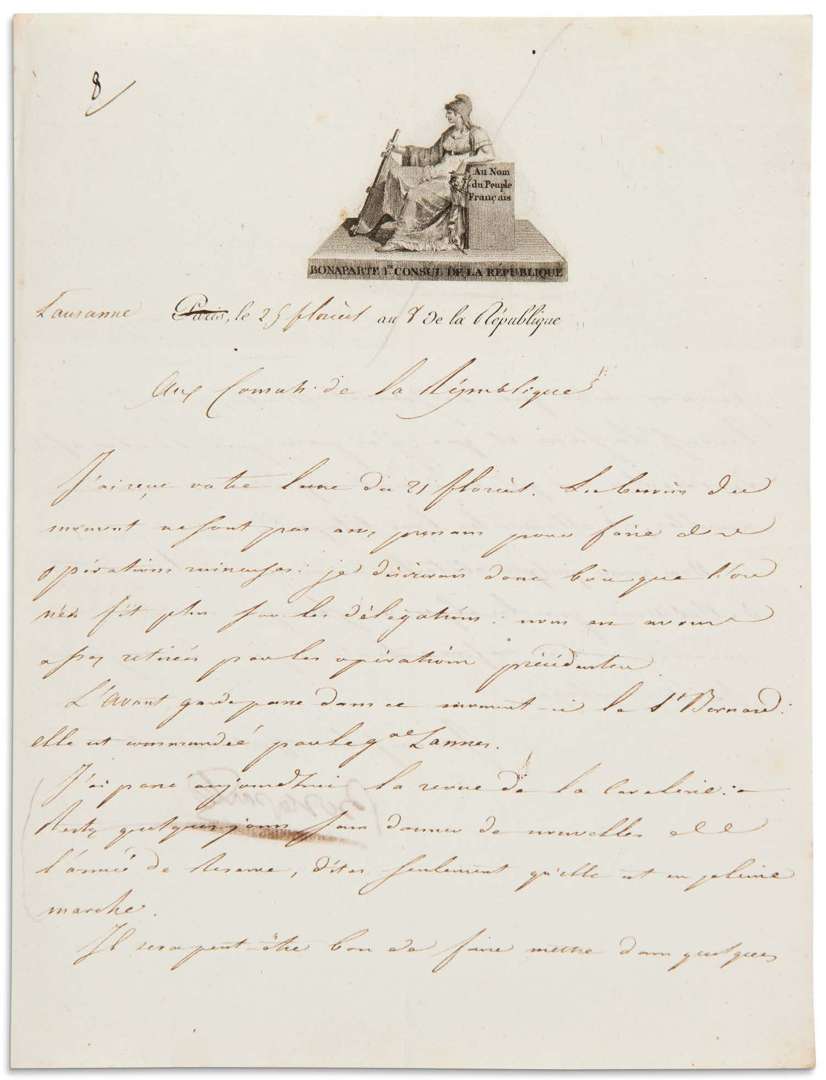 8
Au Nom
du Peuple
Français
BONAPARTE 1er CONSUL DE LA RÉPUBLIQUE
Lausanne Paris, le 25 floréal an 8 de la République
Aux Consuls de la République
J'ai reçu votre lettre du 21 floréal. Les besoins du
moment ne sont pas assez pressans pour faire des
opérations ruineuses: je désirerais donc bien que l'on
n'en fit plus sur les délégations: nous en avons
assez retirées par les opérations précédentes.
L'avant garde passe dans ce moment-ci le St Bernard:
elle est commandée par le gal Lannes.
J'ai passé aujourd'hui la revue de la Cavalerie:
Restez quelques jours sans donner de nouvelles de
l'armée de Reserve, dites seulement qu'elle est en pleine
marche.
Il sera peut-être bon de faire mettre dans quelques